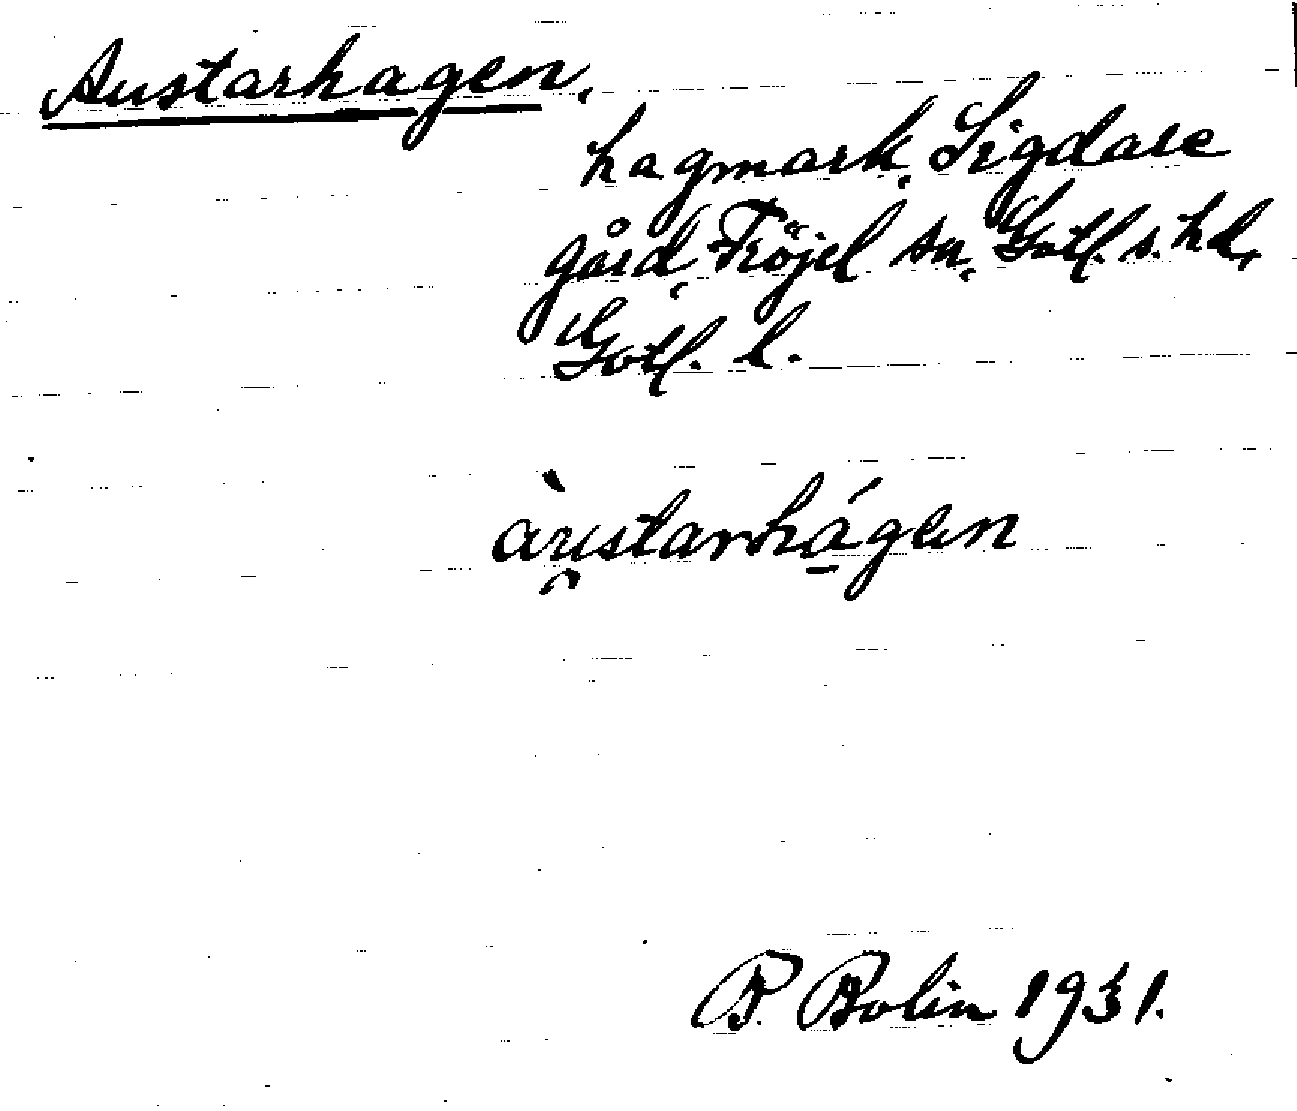 Austarhagen.
hagmark, Sigdare
gård, Fröjel sn, Gotl. s. hd,
Gotl. l.
àu̯starhá̠gen
B. Bolin 1931.